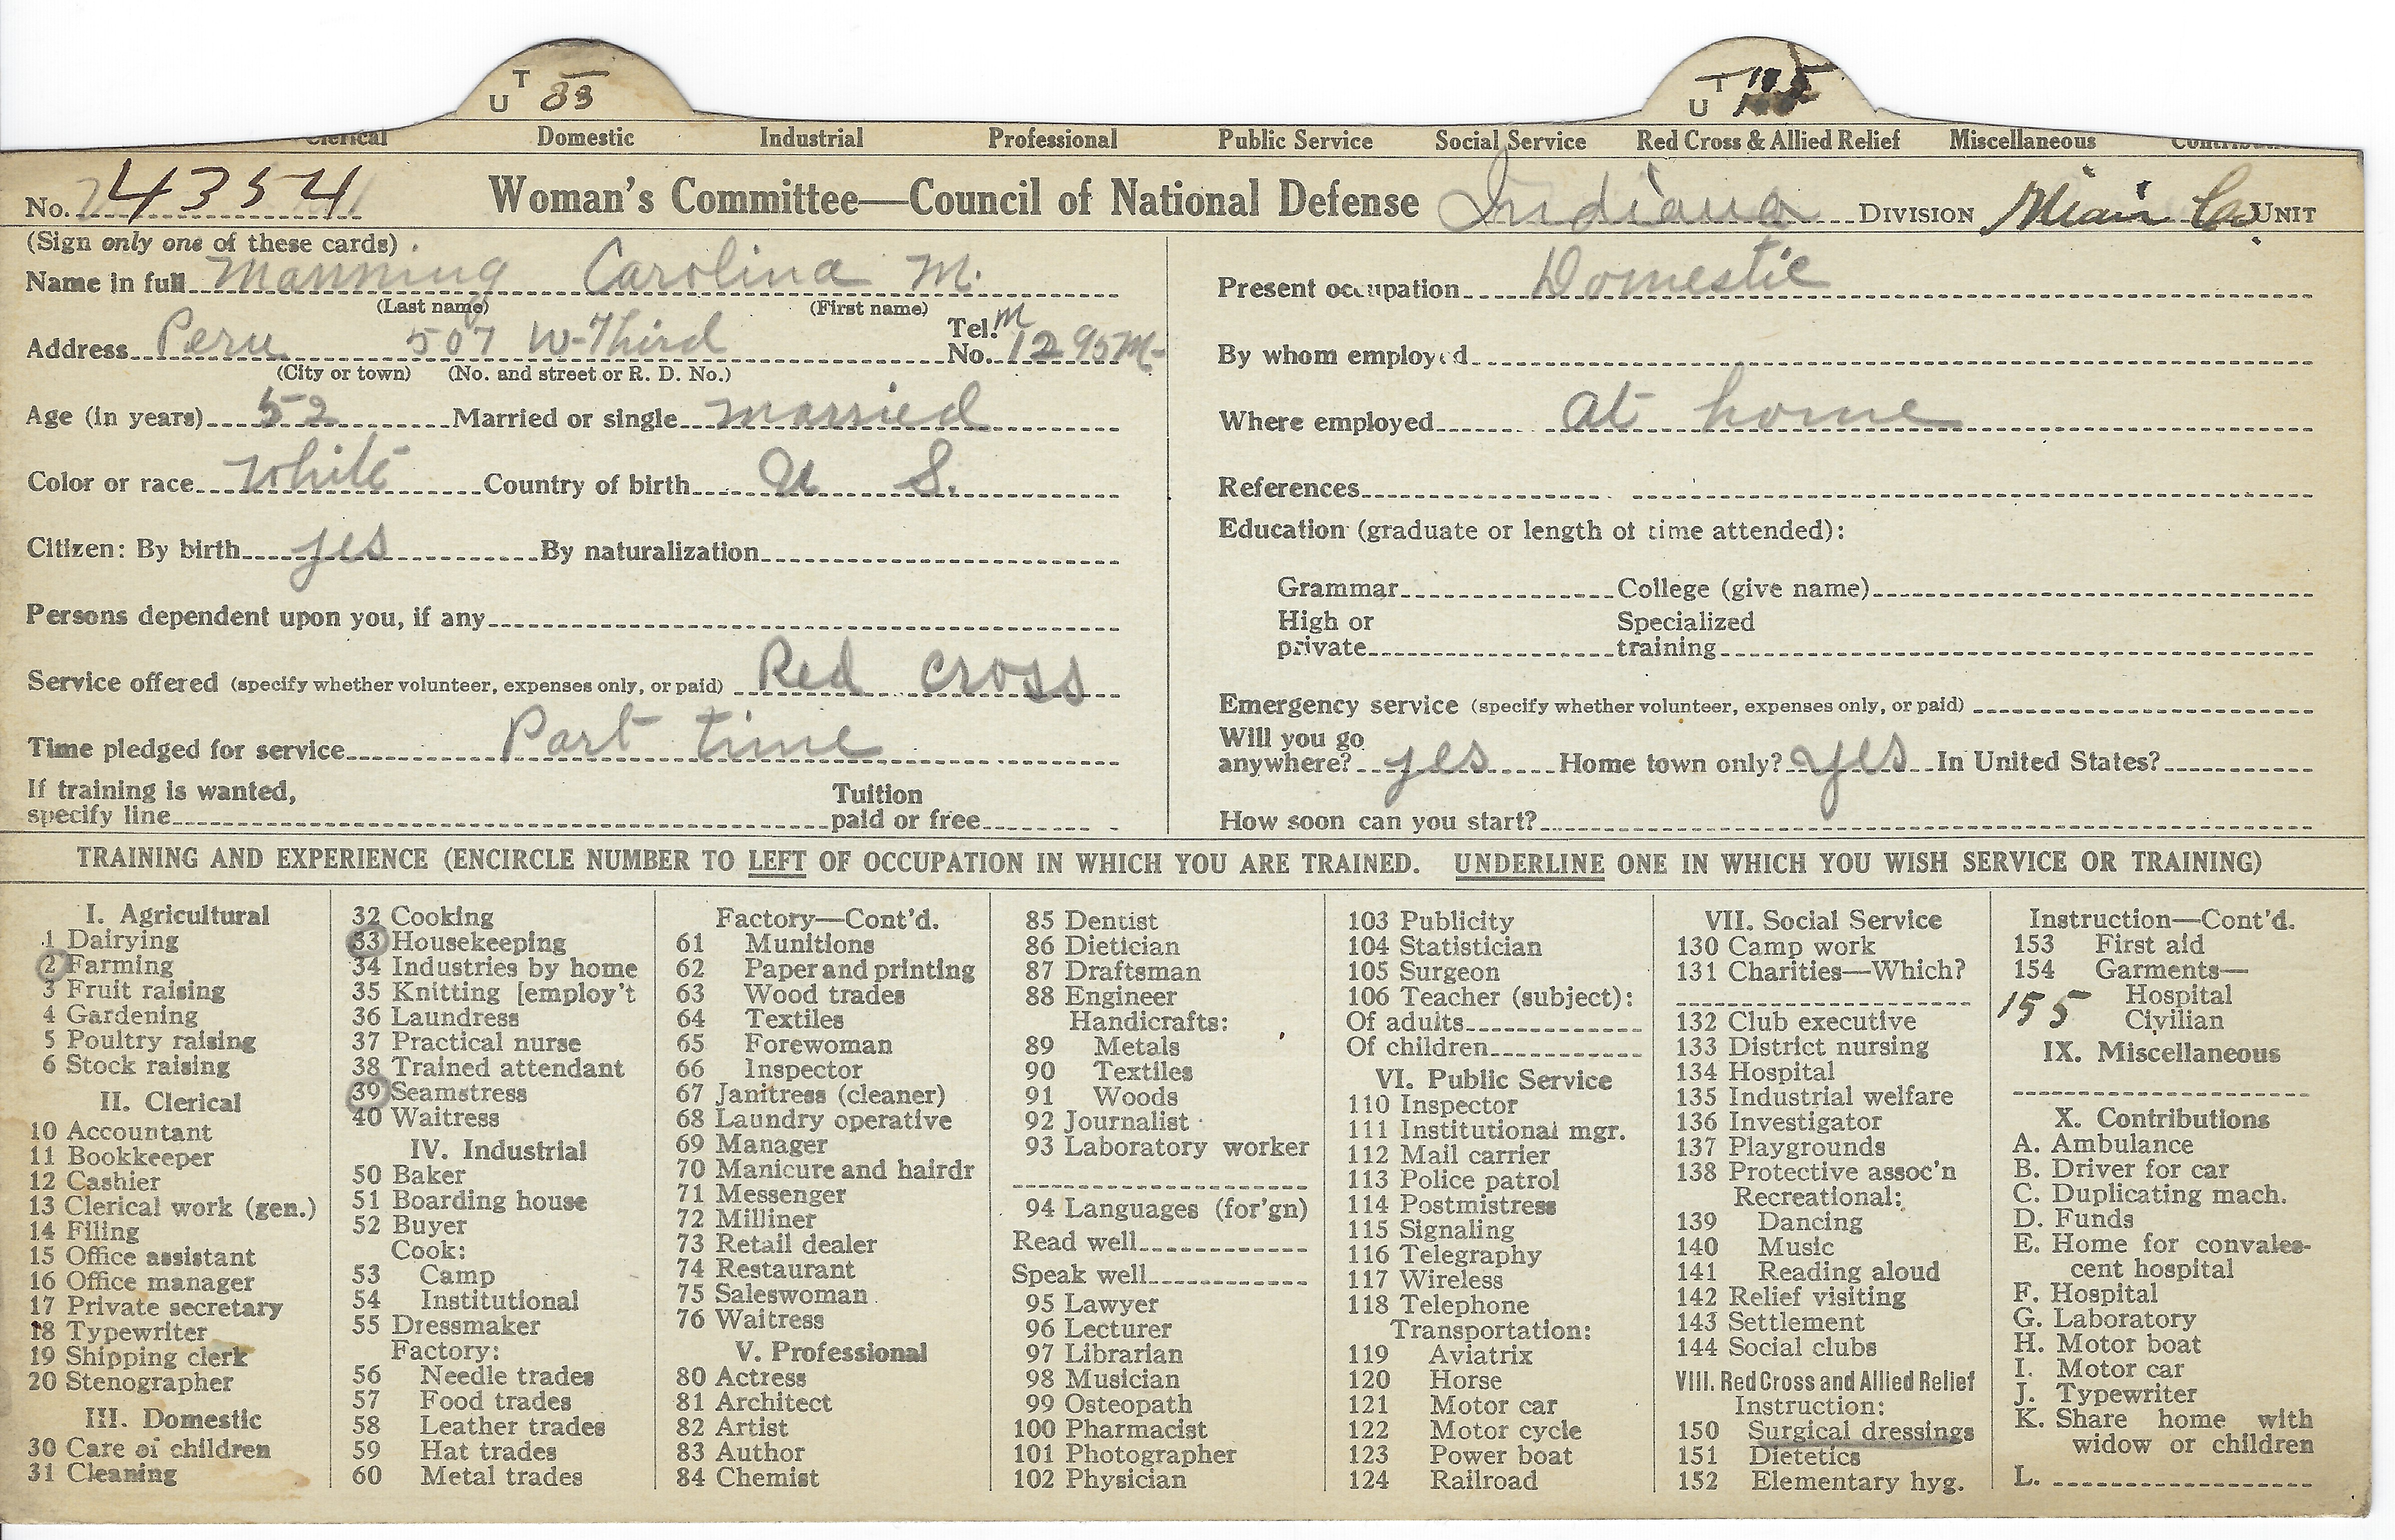 U T 33
U T
Clerical Domestic Industrial Professional Public Service Social Service Red Cross & Allied Relief Miscellaneous
No. 4354 Woman's Committee—Council of National Defense Indiana DIVISION Miami Co. UNIT
(Sign only one of these cards)
Name in full Manning Carolina M.
(Last name) (First name)
Address Peru 507 W-Third Tel. No. M 1295M-
(City or town) (No. and street or R. D. No.)
Age (in years) 52 Married or single married
Color or race White Country of birth U S.
Citizen: By birth yes By naturalization
Persons dependent upon you, if any
Service offered (specify whether volunteer, expenses only, or paid) Red cross
Time pledged for service Part time
If training is wanted,
specify line Tuition paid or free
Present occupation Domestic
By whom employed
Where employed at home
References
Education (graduate or length of time attended):
Grammar College (give name)
High or private Specialized training
Emergency service (specify whether volunteer, expenses only, or paid)
Will you go anywhere? yes Home town only? yes In United States?
How soon can you start?
TRAINING AND EXPERIENCE (ENCIRCLE NUMBER TO LEFT OF OCCUPATION IN WHICH YOU ARE TRAINED. UNDERLINE ONE IN WHICH YOU WISH SERVICE OR TRAINING)
I. Agricultural
1 Dairying
2 Farming
3 Fruit raising
4 Gardening
5 Poultry raising
6 Stock raising
II. Clerical
10 Accountant
11 Bookkeeper
12 Cashier
13 Clerical work (gen.)
14 Filing
15 Office assistant
16 Office manager
17 Private secretary
18 Typewriter
19 Shipping clerk
20 Stenographer
III. Domestic
30 Care of children
31 Cleaning
32 Cooking
33 Housekeeping
34 Industries by home
35 Knitting [employ't
36 Laundress
37 Practical nurse
38 Trained attendant
39 Seamstress
40 Waitress
IV. Industrial
50 Baker
51 Boarding house
52 Buyer
Cook:
53 Camp
54 Institutional
55 Dressmaker
Factory:
56 Needle trades
57 Food trades
58 Leather trades
59 Hat trades
60 Metal trades
Factory—Cont'd.
61 Munitions
62 Paper and printing
63 Wood trades
64 Textiles
65 Forewoman
66 Inspector
67 Janitress (cleaner)
68 Laundry operative
69 Manager
70 Manicure and hairdr
71 Messenger
72 Milliner
73 Retail dealer
74 Restaurant
75 Saleswoman
76 Waitress
V. Professional
80 Actress
81 Architect
82 Artist
83 Author
84 Chemist
85 Dentist
86 Dietician
87 Draftsman
88 Engineer
Handicrafts:
89 Metals
90 Textiles
91 Woods
92 Journalist
93 Laboratory worker
94 Languages (for'gn)
Read well
Speak well
95 Lawyer
96 Lecturer
97 Librarian
98 Musician
99 Osteopath
100 Pharmacist
101 Photographer
102 Physician
103 Publicity
104 Statistician
105 Surgeon
106 Teacher (subject):
Of adults
Of children
VI. Public Service
110 Inspector
111 Institutional mgr.
112 Mail carrier
113 Police patrol
114 Postmistress
115 Signaling
116 Telegraphy
117 Wireless
118 Telephone
Transportation:
119 Aviatrix
120 Horse
121 Motor car
122 Motor cycle
123 Power boat
124 Railroad
VII. Social Service
130 Camp work
131 Charities—Which?
132 Club executive
133 District nursing
134 Hospital
135 Industrial welfare
136 Investigator
137 Playgrounds
138 Protective assoc'n
Recreational:
139 Dancing
140 Music
141 Reading aloud
142 Relief visiting
143 Settlement
144 Social clubs
VIII. Red Cross and Allied Relief
Instruction:
150 Surgical dressings
151 Dietetics
152 Elementary hyg.
Instruction—Cont'd.
153 First aid
154 Garments—
Hospital
155 Civilian
IX. Miscellaneous
X. Contributions
A. Ambulance
B. Driver for car
C. Duplicating mach.
D. Funds
E. Home for convales-
cent hospital
F. Hospital
G. Laboratory
H. Motor boat
I. Motor car
J. Typewriter
K. Share home with
widow or children
L.